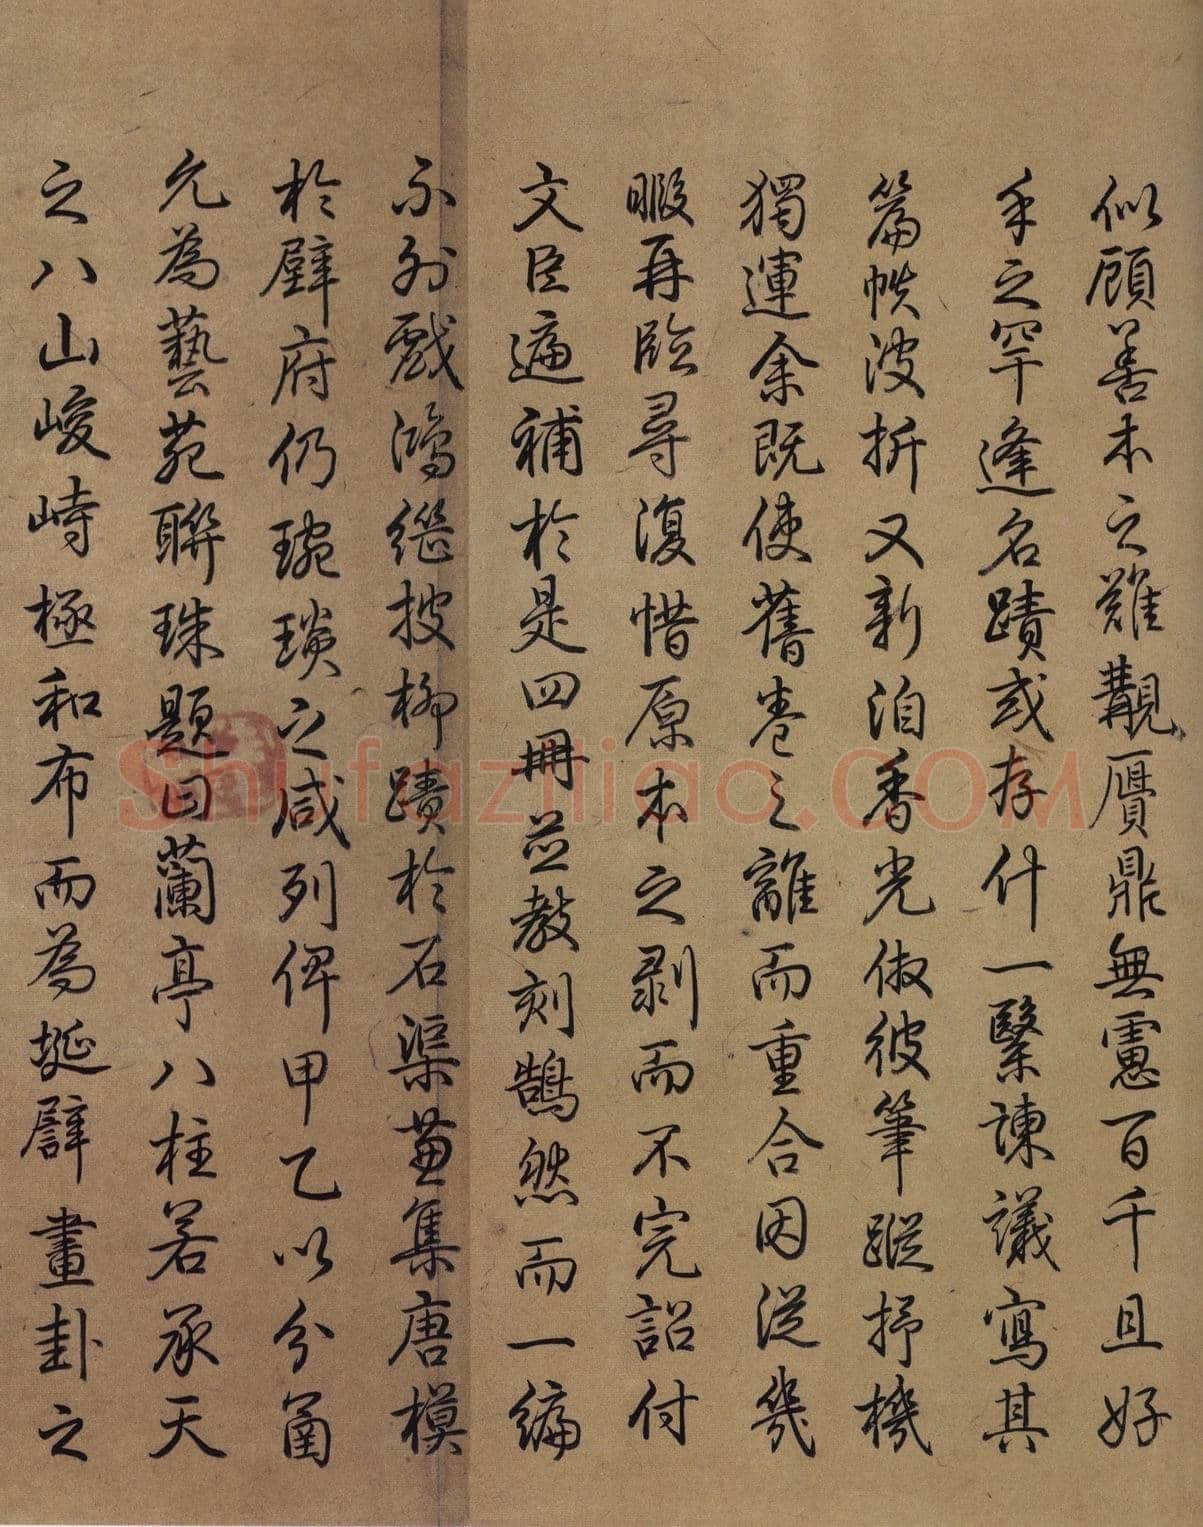 似顧善本之難覯贋鼎無慮百千且好
手之罕逢名蹟或存什一繄諫議寫其
篇帙波折又新洎香光倣彼筆蹤抒機
獨運余既使舊卷之離而重合因從幾
暇再臨尋復惜原本之剥而不完詔付
文臣遍補於是四冊並教刻鵠然而一編
不列戲鴻繼披柳蹟於石渠蒐集唐模
於壁府仍琬琰之咸列俾甲乙以分函
允為藝苑聯珠題曰蘭亭八柱若承天
之八山峻峙極和布而為埏劈畫卦之
Shufaziliao.COM